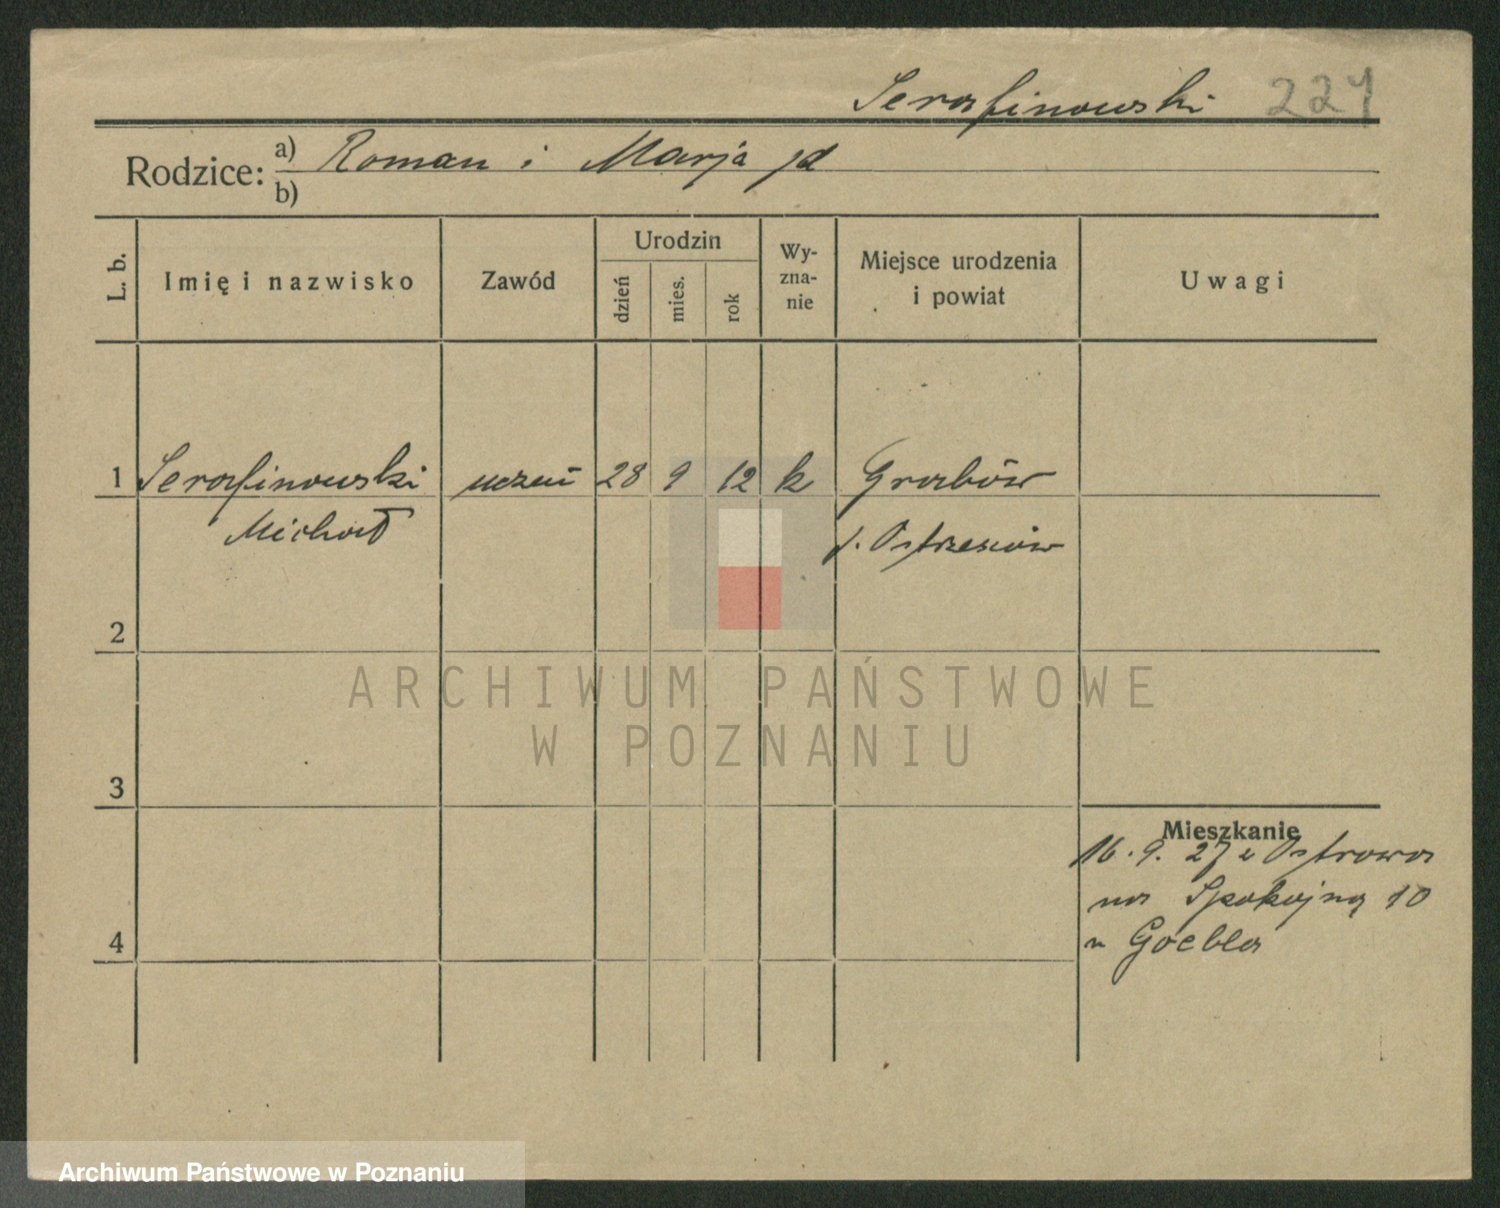 Serafinowski 224
Rodzice: a) Roman i Marja jd
b)
L. b. Imię i nazwisko Zawód Urodzin dzień mies. rok Wy-zna-nie Miejsce urodzenia i powiat Uwagi
1 Serafinowski uczeń 28 9 12 k Grabów
Michał p. Ostrzeszów
2
ARCHIWUM PAŃSTWOWE
W POZNANIU
3
Mieszkanie
16. 9. 27 z Ostrowa
na Spokojną 10
4 u Goebla
Archiwum Państwowe w Poznaniu